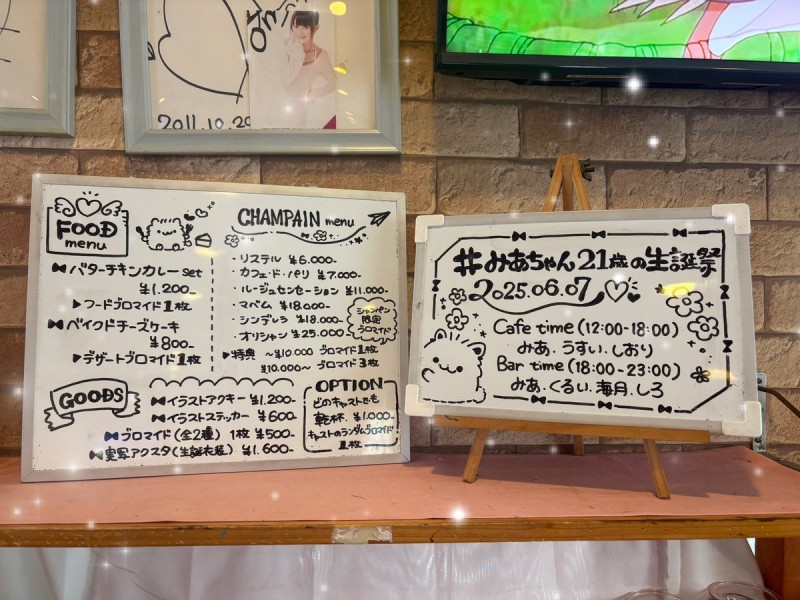 2011.10.29
FOOD
menu
バターチキンカレーset
¥1.200-
▶フードブロマイド1枚
ベイクドチーズケーキ
¥800-
▶デザートブロマイド1枚
CHAMPAIN menu
・リステル ¥6.000-
・カフェ・ド・パリ ¥7.000-
・ルージュセンセーション ¥11.000-
・マバム ¥18.000-
・シンデレラ ¥18.000-
・オリシャン ¥25.000-
▶特典 〜¥10.000 ブロマイド1枚
¥10.000〜 ブロマイド3枚
シャンパン
限定
ブロマイド
GOODS
イラストアクキー ¥1.200-
イラストステッカー ¥600-
ブロマイド(全2種) 1枚 ¥500-
実写アクスタ(生誕衣装) ¥1.600-
OPTION
どのキャストでも
乾杯 ¥1.000-
キャストのランダムブロマイド
1枚
#みあちゃん21歳の生誕祭
2025.06.07
Cafe time (12:00-18:00)
みあ.うすい.しおり
Bar time (18:00-23:00)
みあ.くるい.海月.しろ